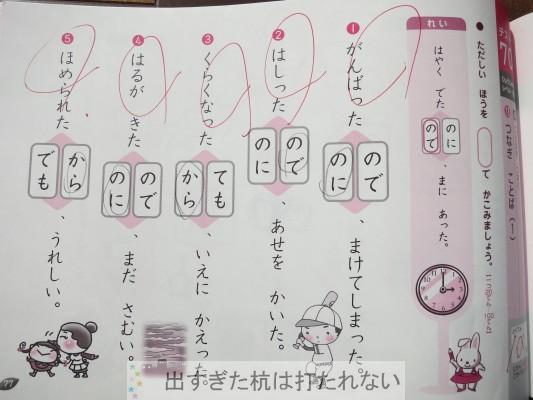 テスト 70
つなぎ ことば (1)
● ただしい ほうを て かこみましょう。
れい
はやく でた のに ので 、まに あった。
❶ がんばった ので のに 、まけてしまった。
❷ はしった ので のに 、あせを かいた。
❸ くらくなった ても から 、いえに かえった。
❹ はるが きた ので のに 、まだ さむい。
❺ ほめられた から でも 、うれしい。
77
出すぎた杭は打たれない